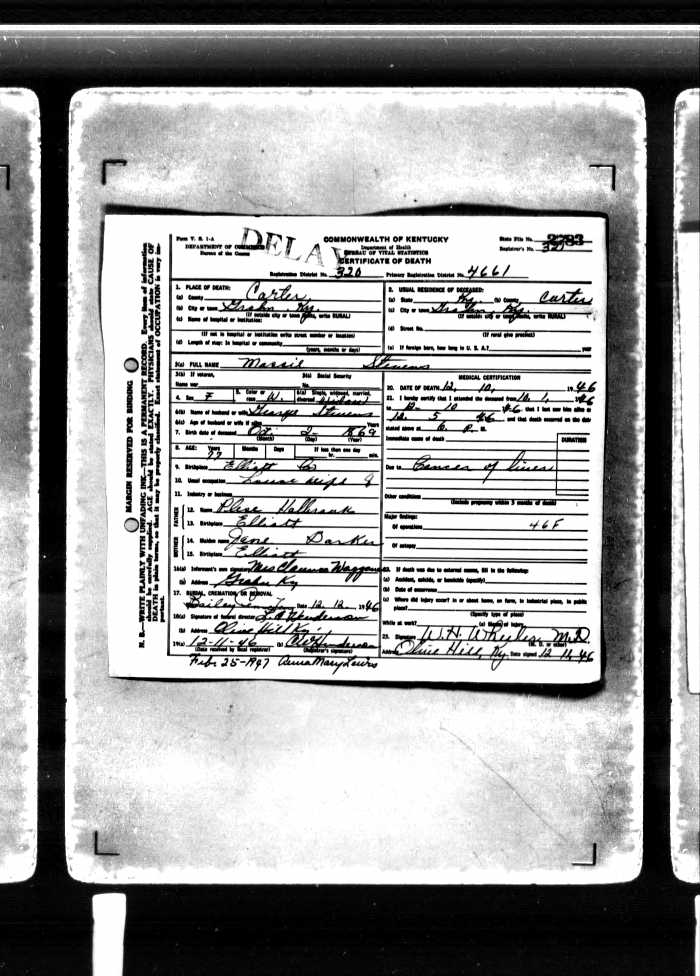 Form V. S. 1-A
DEPARTMENT OF COMMERCE
Bureau of the Census
DELA
COMMONWEALTH OF KENTUCKY
Department of Health
BUREAU OF VITAL STATISTICS
CERTIFICATE OF DEATH
State File No. 2783
Registrar's No. 321
Registration District No. 320 Primary Registration District No. 4661
MARGIN RESERVED FOR BINDING
N. B.—WRITE PLAINLY WITH UNFADING INK—THIS IS A PERMANENT RECORD. Every item of information
should be carefully supplied. AGE should be stated EXACTLY. PHYSICIANS should state CAUSE OF
DEATH in plain terms, so that it may be properly classified. Exact statement of OCCUPATION is very im-
portant.
1. PLACE OF DEATH:
(a) County Carter
(b) City or town Grahn Ky.
(If outside city or town limits, write RURAL)
(c) Name of hospital or institution:
(If not in hospital or institution write street number or location)
(d) Length of stay: In hospital or community
(years, months or days)
2. USUAL RESIDENCE OF DECEASED:
(a) State Ky. (b) County Carter
(c) City or town Grahn Ky.
(If outside city or town limits, write RURAL)
(d) Street No.
(If rural give precinct)
(e) If foreign born, how long in U. S. A.? year
3(a) FULL NAME Massie Stevens
3(b) If veteran,
Name war
3(c) Social Security
No.
4. Sex F 5. Color or race W. 6(a) Single, widowed, married, divorced Widow
6(b) Name of husband or wife George Stevens
6(c) Age of husband or wife if alive Years
7. Birth date of deceased Oct. 2 1869
(Month) (Day) (Year)
8. AGE: Years 77 Months Days If less than one day
hr. min.
9. Birthplace Elliott Co
10. Usual occupation House wife
11. Industry or business
FATHER
12. Name
13. Birthplace Elliott
MOTHER
14. Maiden name Jane Barker
15. Birthplace Elliott
16(a) Informant's own signature Mrs Clarence Waggoner
(b) Address Grahn Ky
17. BURIAL, CREMATION, OR REMOVAL
Date 12. 12. 1946
18(a) Signature of funeral director Henderson
(b) Address Olive Hill Ky
19(a) 12-11-46 (b) Henderson
(Date received by local registrar) (Registrar's signature)
Feb. 25-1947 Anna Mary Lewis
MEDICAL CERTIFICATION
20. DATE OF DEATH 12, 10, 1946
21. I hereby certify that I attended the deceased from 12, 1, 1946
to 12-10 46 that I last saw him alive on
12 5 46 and that death occurred on the date
stated above at 6. P. M.
Immediate cause of death
DURATION
Due to Cancer of liver
Other conditions
(Include pregnancy within 3 months of death)
Major findings:
Of operations 46F
Of autopsy
22. If death was due to external causes, fill in the following:
(a) Accident, suicide, or homicide (specify)
(b) Date of occurrence
(c) Where did injury occur? In or about home, on farm, in industrial place, in public
place?
(Specify type of place)
While at work? (e) Means of injury
23. Signature W. H. Wheeler M.D.
(M. D. or other)
Address Olive Hill, Ky. Date signed 12 11, 46